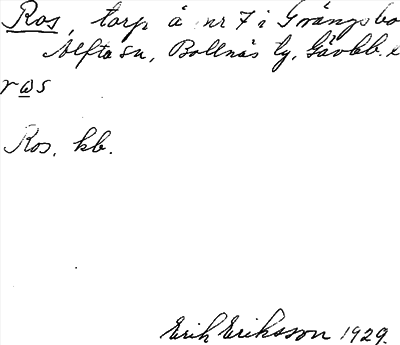 Ros, torp å nr 7 i Grängsbo
Alfta sn, Bollnäs tg, Gävleb. l
rωs
Ros. kb.
Erik Eriksson 1929.